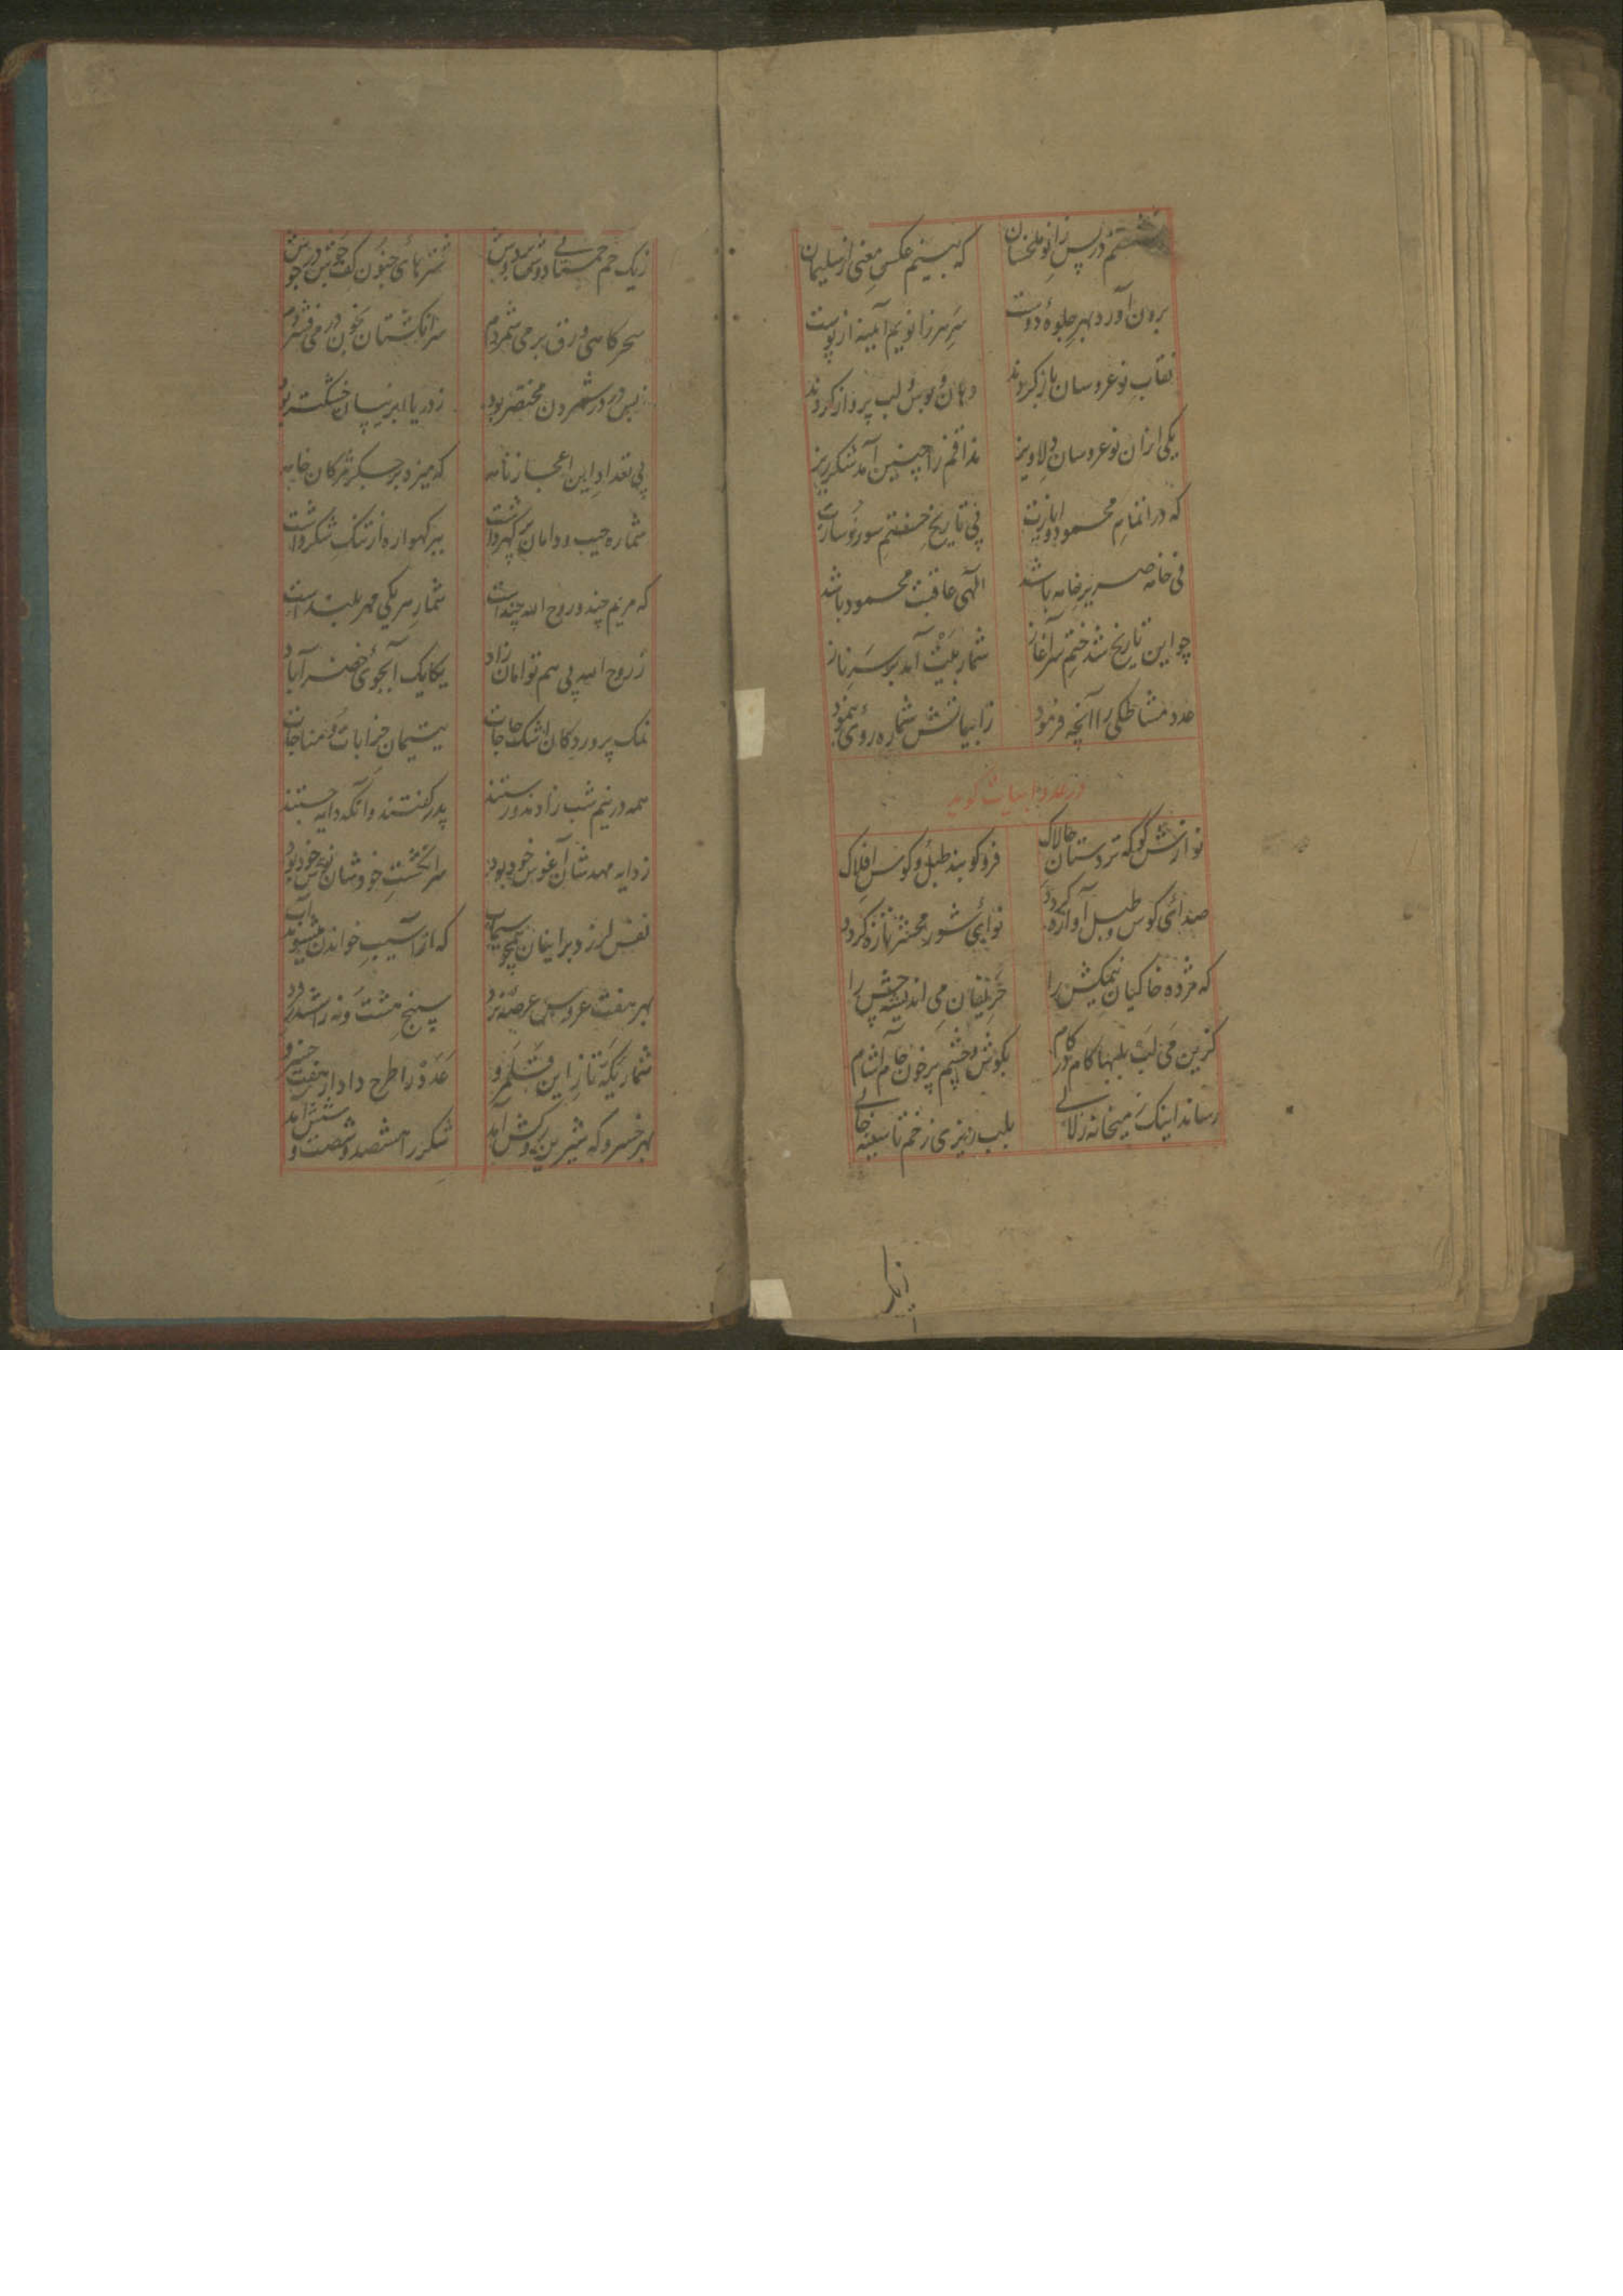 در پس زانو ملخسان که بینم عکس معنی از سلیمان
برون آورد بهر جلوهٔ دوست سر سر زانویم آیینه از پوست
نقاب نوعروسان باز کردند دهان و بوس لب پرواز کردند
یکی از آن نوعروسان دلاویز مذاقم را چنین آمد شکرریز
که در اتمام محمود و ایازت پی تاریخ
فی خامه صریر خامه باشد الهی عاقبت محمود باشد
چو این تاریخ شد ختم سرآغاز شمار بیت آمد بر سر ناز
عدد مشاطگی را آنچه فرمود ز ابیاتش شماره روی بنمود
در عدد ابیات گوید
نوازش گو که تردستان چالاک فرو کوبند طبل و کوس افلاک
صدای کوس و طبل آوازه گردد نوای شور محشر تازه گردد
که مژده خاکیان نمکش را حریفان می اندیشه چش را
کزین می لب بلبها کام در کام بگوش و چشم پر خون جام آشام
رساند اینک ز میخانه زلالی بلب ریزی زخم تا سینه خالی
زیک
زیک خم خمستانی دوش بر دوش شتر پای جنون کف جوش در جوش
سحرگاهی ورق برمی شمردم سر انگشتان بخون در می فشردم
ز بس در در شمردن مختصر بود ز دریا ابر نیسان خشکتر بود
پی تعداد این اعجاز نامه که میزد بر جگر مژگان خامه
شماره جیب و دامان پر گهر داشت ببر گهواره از تنگ شکر داشت
که مریم چند و روح الله چند است شمار هر یکی مهر بلند است
ز روح الله پی هم توامان زاد یکایک آبجوی خضر آباد
نمک پروردگان اشک حاجات یتیمان خرابات و مناجات
همه در نیم شب زادند و رستند پدر گفتند و آنگه دایه جستند
ز دایه مهد شان آغوش خود بود سر انگشت خود شان نوش خود بود
نفس لرزد بر ایشان همچو سیماب که از آسیب خواندن میشوند آب
بهر هفت عروس عرصهٔ نرد به پنج هشت و نه را ششدر کرد
شمار یکه تاز این قلمرو عدد را طرح داد از هفت خسرو
بهر خسرو که شیرین پروکش آمد شکر را هشتصد و شصت و شش آمد